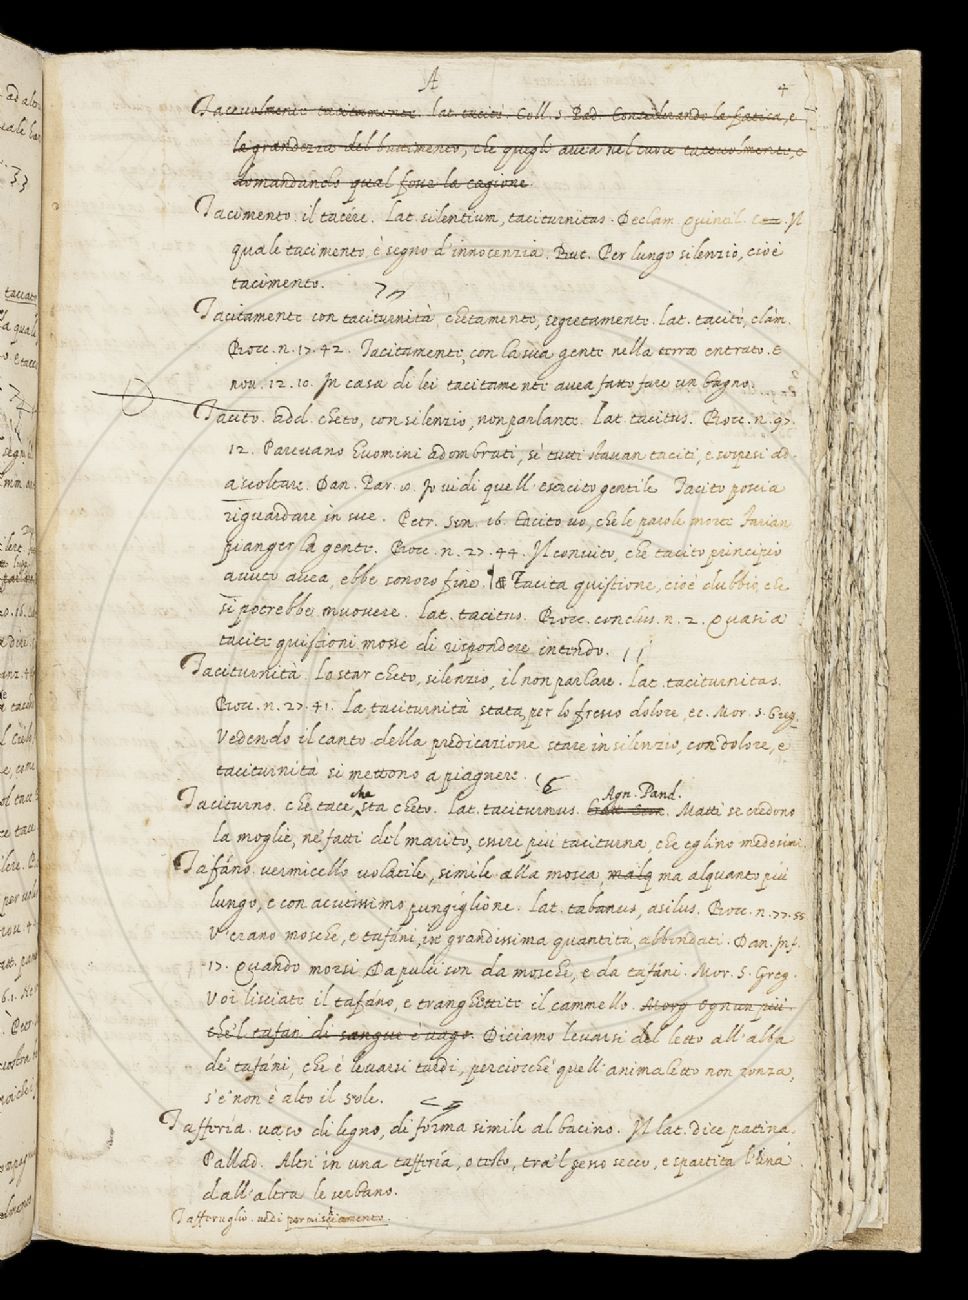 A 4
Tacevolmente tacitamente. lat. tacitè. Coll. S. Pad. Considerando la fatica, e
la grandezza del buttimento, che quegli avea nel cuore tacevolmente, e
domandando qual fosse la cagione.
Tacimento. il tacére. Lat. silentium, taciturnitas. Declam. Quintil. C. Il
quale tacimento, è segno d'innocenzia. But. Per lungo silenzio, cioè
tacimento.
Tacitamente con taciturnità, chetamente, segretamente. Lat. tacitè, clàm.
Bocc. n. 17. 42. Tacitamente, con la sua gente nella terra entrato. E
nov. 12. 10. In casa di lei tacitamente avea fatto fare un bagno.
Tacito. add. cheto, con silenzio, non parlante. Lat. tacitus. Bocc. n. 97.
12. Parevano huomini adombrati, sì tutti stavan taciti, e sospesi ad
ascoltare. Dan. Par. Io vidi quell' esercito gentile Tacito poscia
riguardare in sue. Petr. Son. 16. Tacito vo, che le parole morte Farian
pianger la gente. Bocc. n. 27. 44. Il convito, che tacito principio
avuto avea, ebbe sonoro fine. & Tacita quistione, cioè dubbio, che
si potrebbe muovere. Lat. tacitus. Bocc. conclus. n. 2. Quasi a
tacite quistioni mosse di rispondere intendo.
Taciturnità. Lo star cheto, silenzio, il non parlare. Lat. taciturnitas.
Bocc. n. 27. 41. La taciturnità stata, per lo fresco dolore, ec. Mor. S. Greg.
Vedendo il canto della predicazione stare in silenzio, con dolore, e
taciturnità si mettono a piagnere.
Taciturno. che tace, che sta cheto. Lat. taciturnus. Agn. Pand. Matti se credono
la moglie, ne' fatti del marito, essere più taciturna, che eglino medesimi.
Tafáno. vermicello volatile, simile alla mosca, malg ma alquanto più
lungo, e con acutissimo pungiglione. Lat. tabanus, asilus. Bocc. n. 77. 55.
V'erano mosche, e tafáni, in grandissima quantità, abbondati. Dan. Inf.
17. Quando morsi Da pulci son da mosche, e da tafáni. Mor. S. Greg.
Voi lisciate il tafáno, e tranghiottite il cammello. Morg. Ognun più
che'l tafan di sangue è vago. Diciamo levarsi del letto all' alba
de' tafáni, che è levarsi tardi, perciocchè quell' animaletto non ronza,
s' e' non è alto il sole.
Tafferìa. vaso di legno, di forma simile al bacino. Il lat. dice patina.
Pallad. Altri in una tafferìa, o testo, tra'l gesso secco, e spartita l'una
dall' altra le serbano.
Tafferuglio. vedi